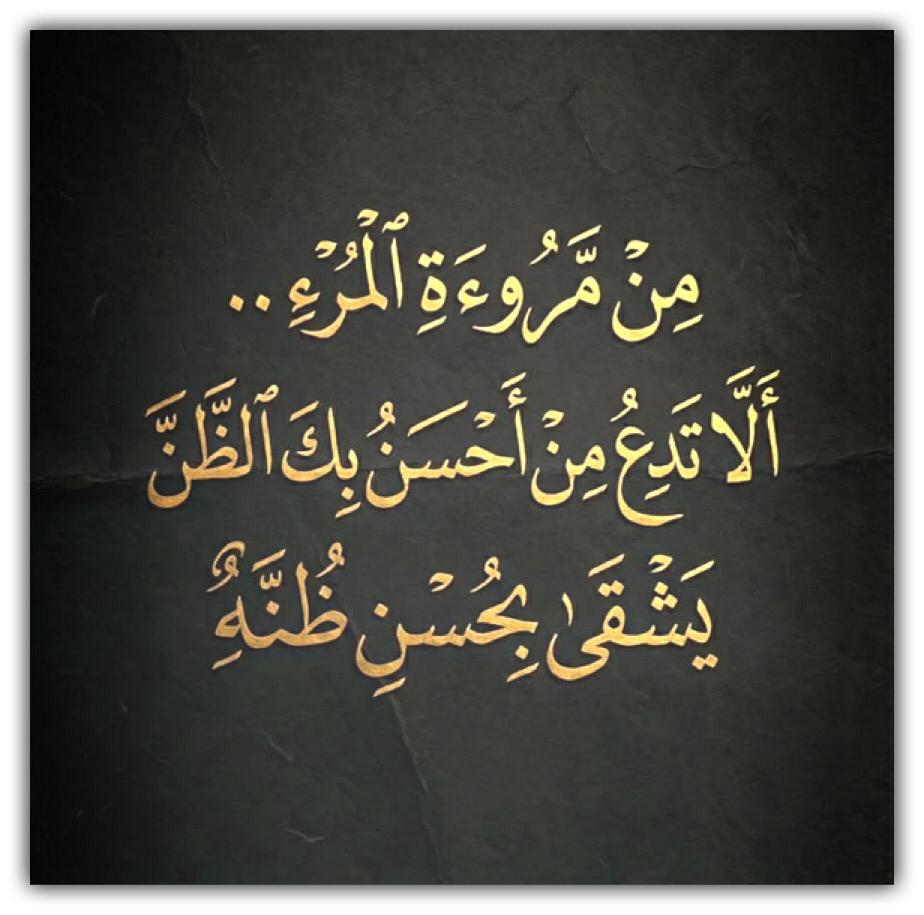 مِنْ مَّرُوءَةِ ٱلْمُرْءِ ..
أَلَّا تَدِعُ مِنْ أَحْسَنُ بِكَ ٱلظَّنَّ
يَشْقَىٰ بِحُسْنِ ظُنَّهِ